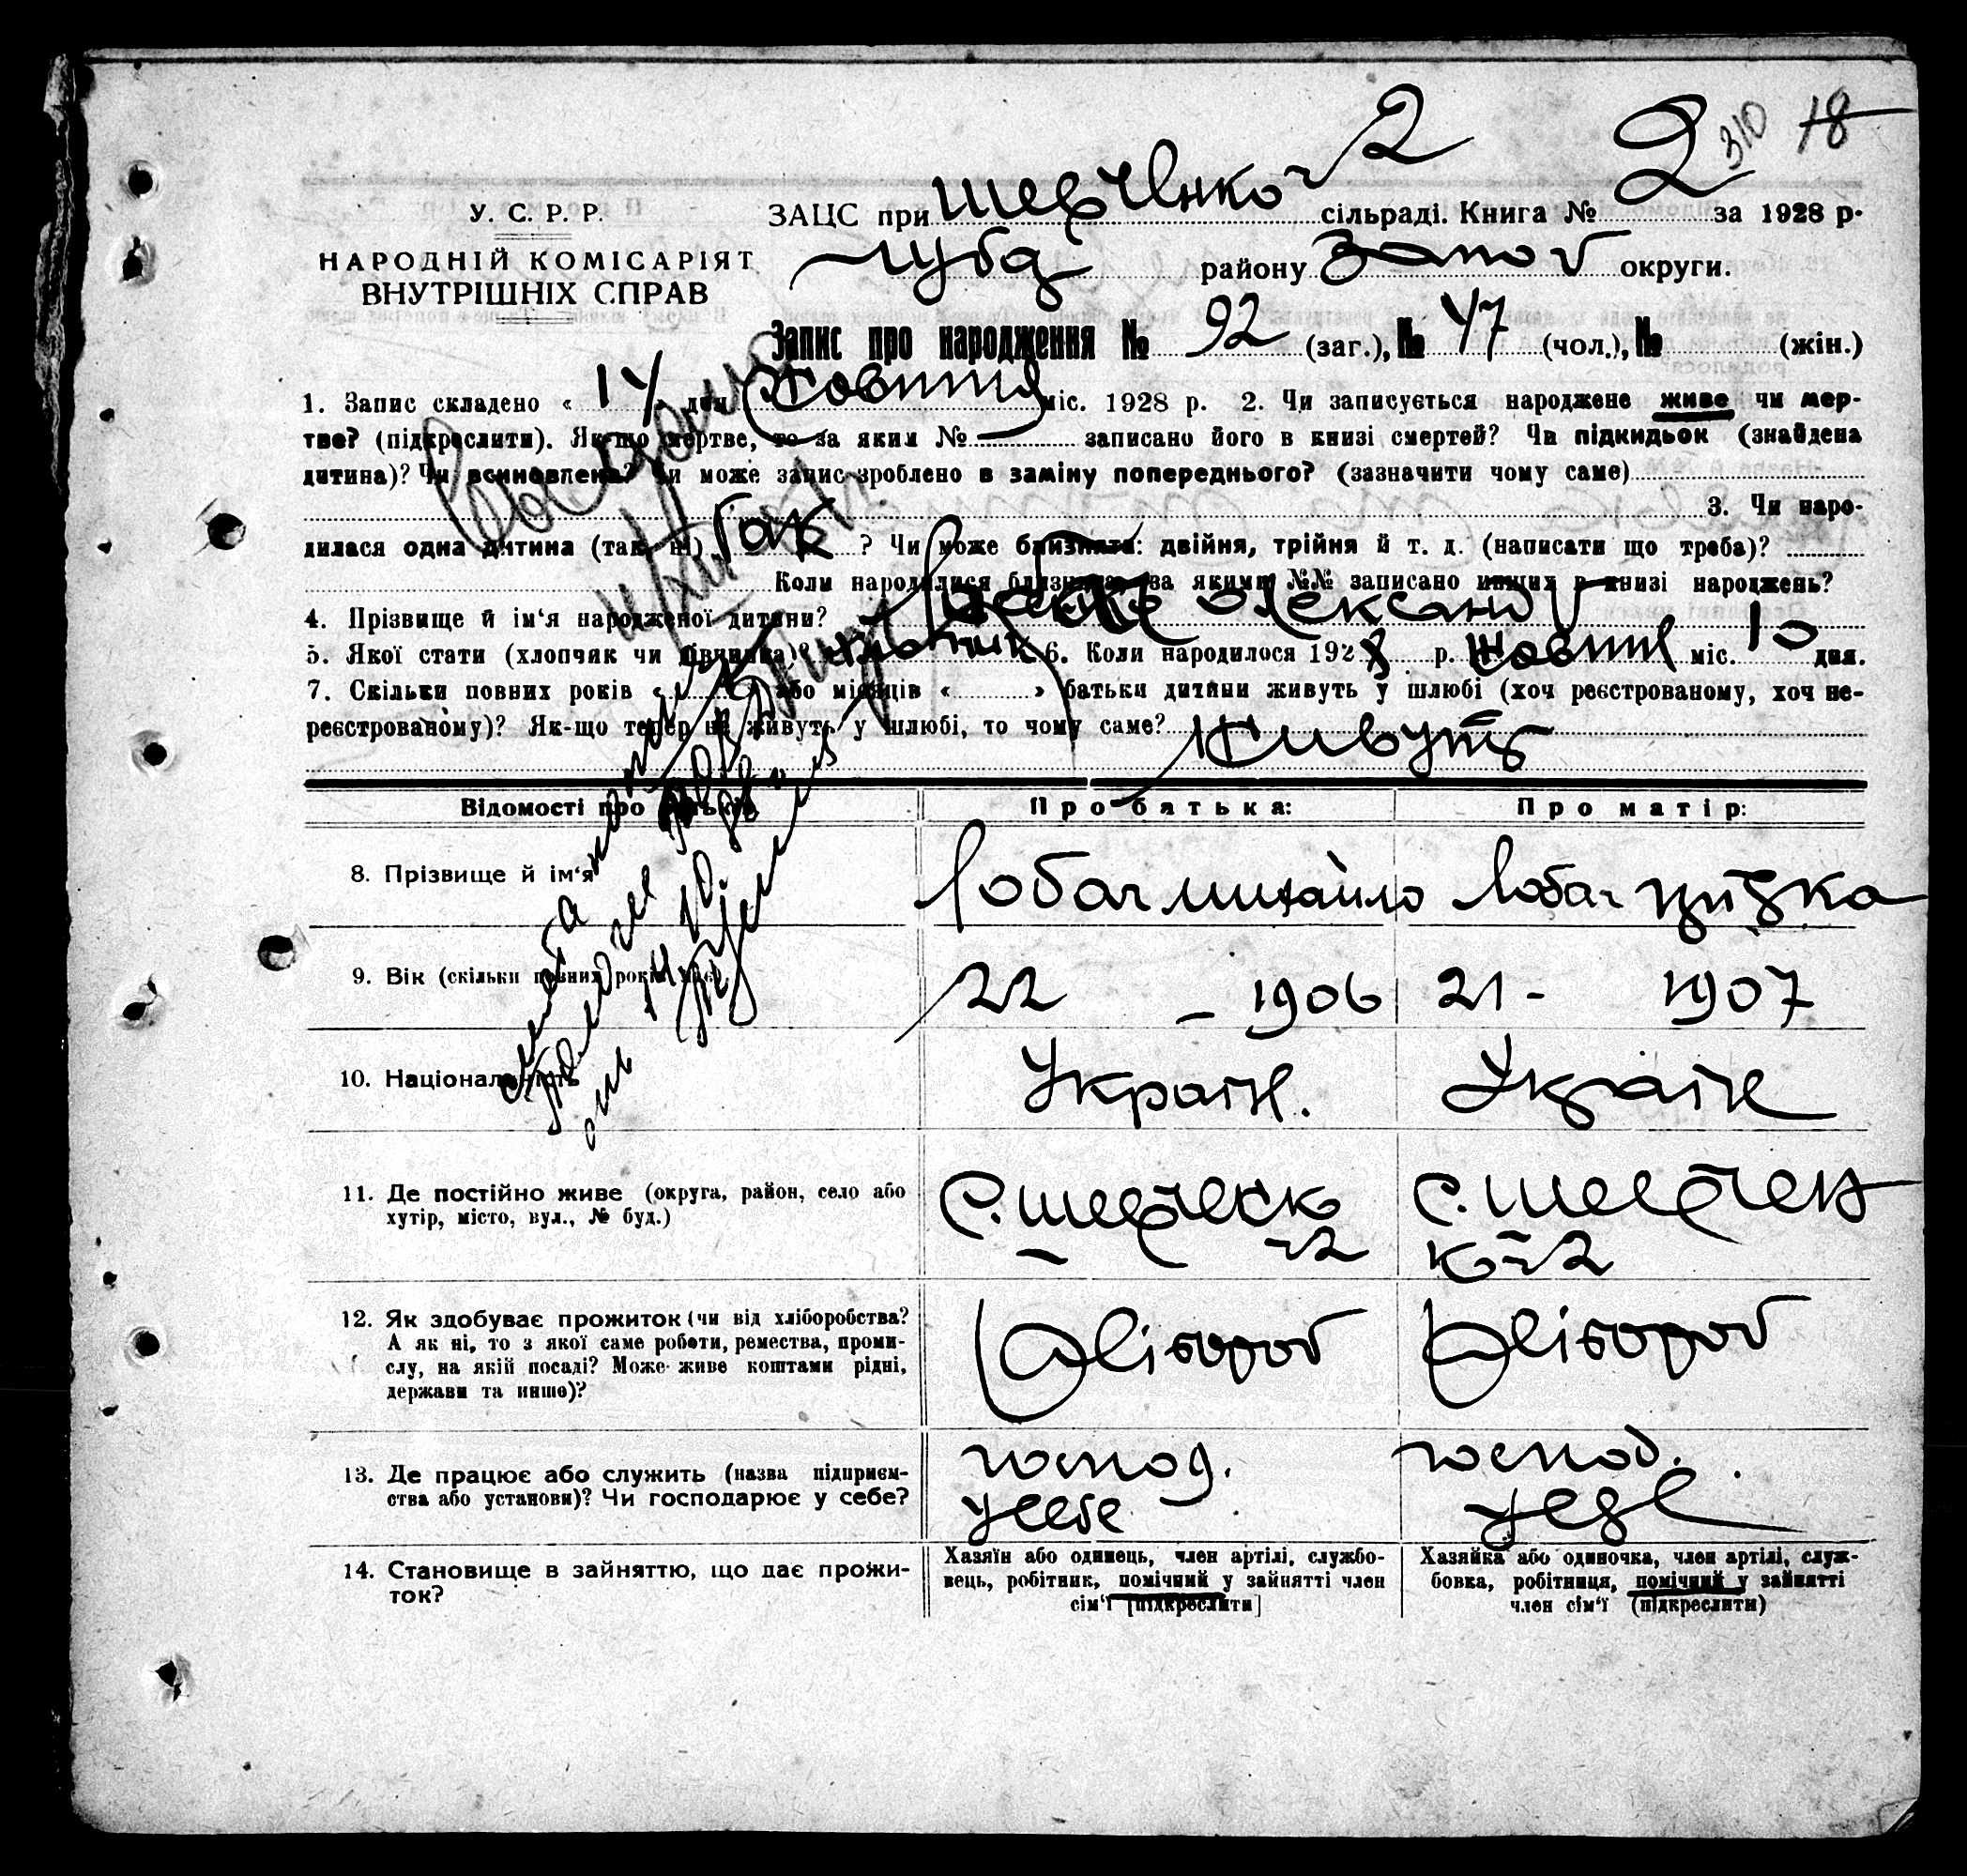 2 310 18
У. С. Р. Р.
НАРОДНІЙ КОМІСАРІЯТ
ВНУТРІШНІХ СПРАВ
ЗАЦС при Шевченко 2 сільраді. Книга № 2 за 1928 р.
району Запо окpуги.
Запис про народження № 92 (заг.), № 47 (чол.), № (жін.)
1. Запис складено « 14 » дня Жовтня міс. 1928 р. 2. Чи записується народжене живе чи мер-
тве? (підкреслити). Як-що мертве, то за яким № — записано його в книзі смертей? Чи підкидьок (знайдена
дитина)? Чи всиновлена? Чи може запис зроблено в заміну попереднього? (зазначити чому саме)
3. Чи наро-
дилася одна дитина (так, ні) так ? Чи може близнята: двійня, трійня й т. д. (написати що треба)?
Коли народилися близнята, за якими №№ записано инших в книзі народжень?
4. Прізвище й ім'я народженої дитини? Олександ
5. Якої стати (хлопчик чи дівчинка)? хлопчик 6. Коли народилося 1928 р. жовтня міс. 10 дня.
7. Скільки повних років « » або місяців « » батьки дитини живуть у шлюбі (хоч реєстрованому, хоч не-
реєстрованому)? Як-що тепер не живуть у шлюбі, то чому саме? Живуть
Відомості про батьків Про батька: Про матір:
8. Прізвище й ім'я Лобач Михайло Лобач
9. Вік (скільки повних років має) 22 – 1906 21 - 1907
10. Національність Україн. Україн
11. Де постійно живе (округа, район, село або
хутір, місто, вул., № буд.)
С. Шевченк
–2
С. Шевчен
к–2
12. Як здобуває прожиток (чи від хліборобства?
А як ні, то з якої саме роботи, ремества, проми-
слу, на якій посаді? Може живе коштами рідні,
держави та инше)?
Хлібороб Хлібороб
13. Де працює або служить (назва підприєм-
ства або установи)? Чи господарює у себе?
господ.
у себе
господ.
у себе
14. Становище в зайняттю, що дає прожи-
ток?
Хазяїн або одинець, член артілі, службо-
вець, робітник, помічний у зайнятті член
сім'ї [підкреслити]
Хазяйка або одиночка, член артілі, служ-
бовка, робітниця, помічний у зайнятті
член сім'ї (підкреслити)